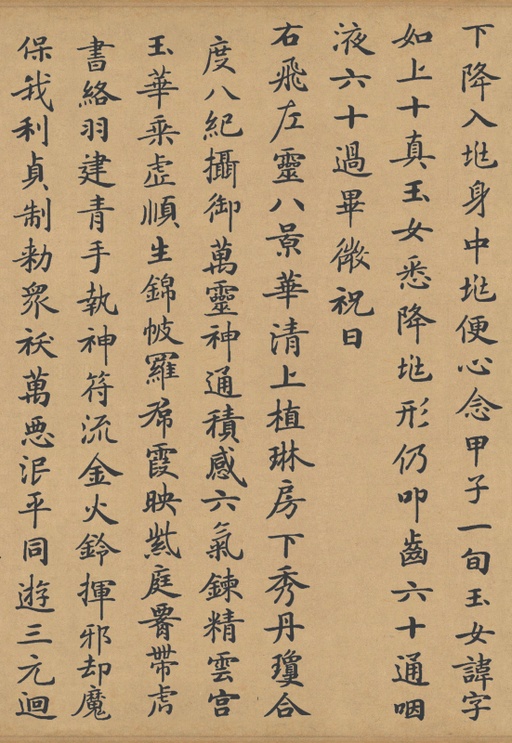 下降入兆身中兆便心念甲子一旬玉女諱字
如上十真玉女悉降兆形仍叩齒六十通咽
液六十過畢微祝曰
右飛左靈八景華清上植琳房下秀丹瓊合
度八紀攝御萬靈神通積感六氣鍊精雲宮
玉華乘虛順生錦帔羅帬霞映紫庭腰帶虎
書絡羽建青手執神符流金火鈴揮邪却魔
保我利貞制勑眾祅萬惡泯平同遊三元迴